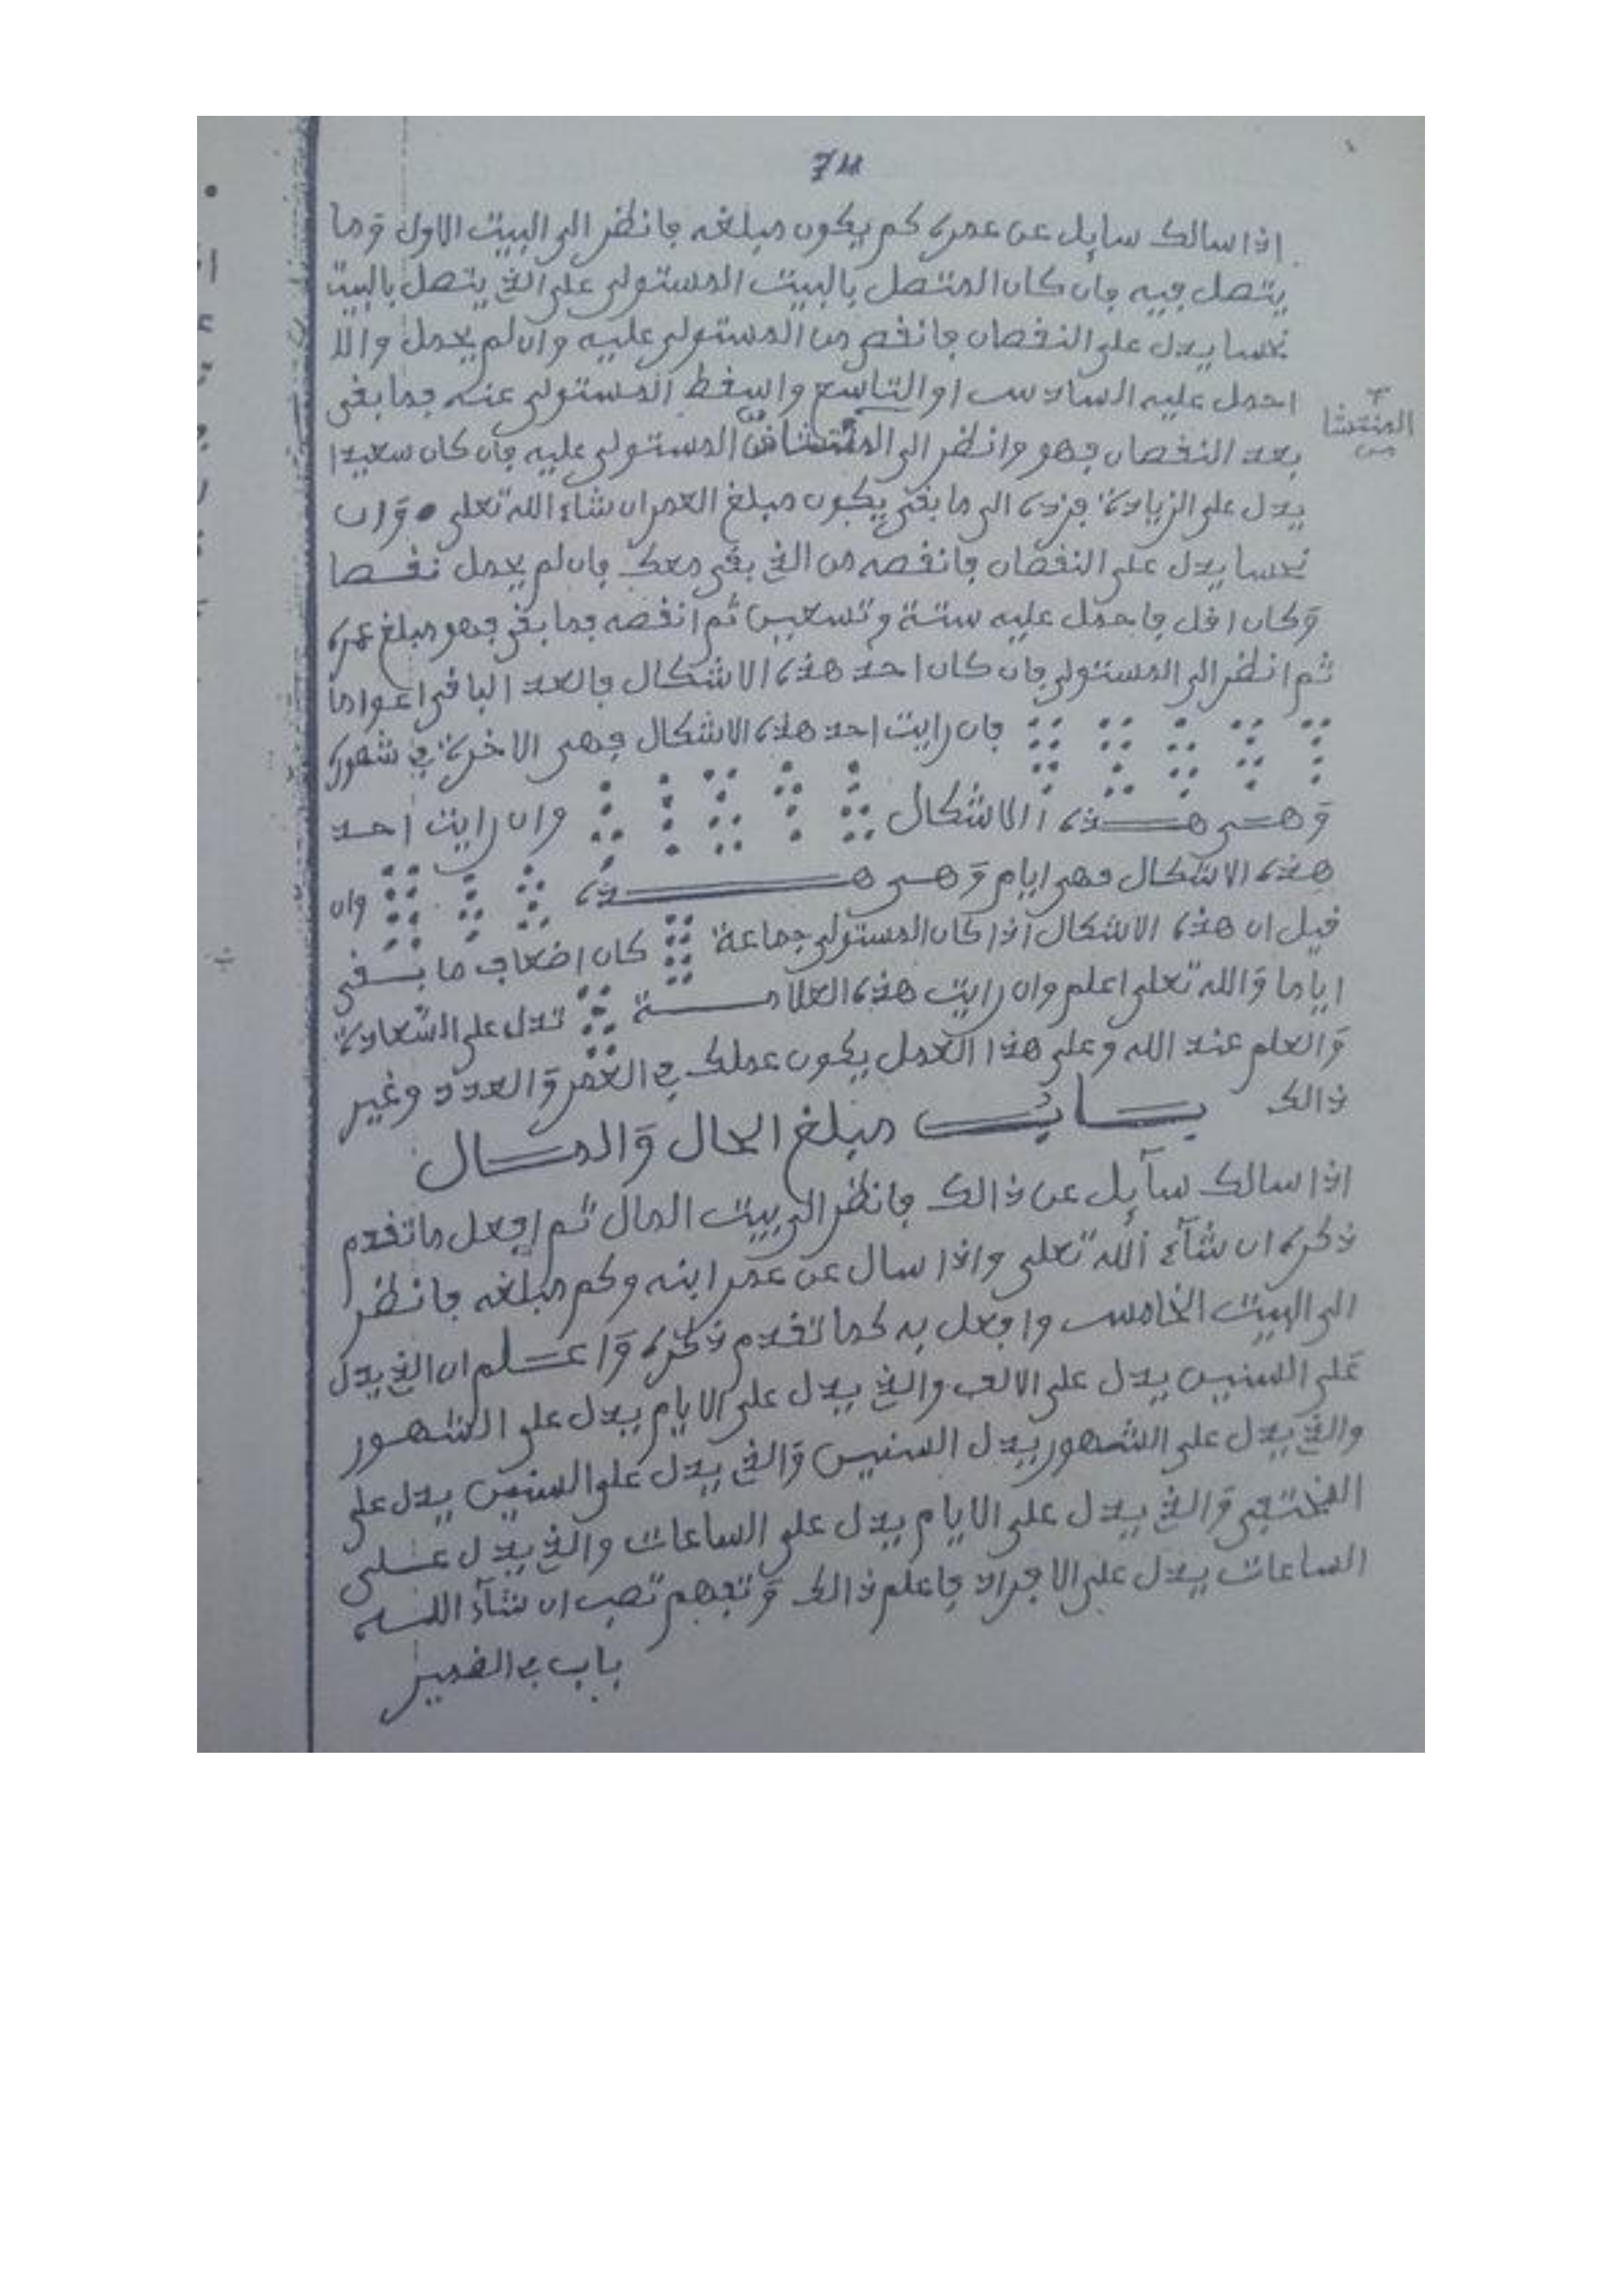 74
اذا سالك سايل عن عمره كم يكون مبلغه فانظر الى البيت الاول وما
يتصل فيه فان كان المتصل بالبيت المستولى على الذي يتصل بالبيت
نحسا يدل على النقصان فانقص من المستولى عليه وان لم يحمل والا
احمل عليه السادس او التاسع واسقط المستولى عنه فما بقى
المنتشا من
بعد النقصان فهو وانظر الى المستولى عليه فان كان سعيدا
يدل على الزيادة فزده الى ما بقى يكون مبلغ العمر ان شاء الله تعلى وان
نحسا يدل على النقصان فانقصه من الذي بقى معك فان لم يحمل نقصا
وكان اقل فاحمل عليه ستة وتسعين ثم انقصه فما بقى فهو مبلغ عمره
ثم انظر الى المستولى فان كان احد هذه الاشكال فالعد الباقى اعواما
فان رايت احد هذه الاشكال فهى الاخرة في شهوره
وهى هذه الاشكال وان رايت احد
هذه الاشكال فهى ايام وهى هذه وان
قيل ان هذه الاشكال اذا كان المستولى جماعة كان اضعاف ما بقى
اياما والله تعلى اعلم وان رايت هذه العلامة تدل على السعادة
والعلم عند الله وعلى هذا العمل يكون عملك في العمر والعدد وغير
ذالك
باب مبلغ الحال والمال
اذا سالك سآيل عن ذالك فانظر الى بيت المال ثم افعل ما تقدم
ذكره ان شآء الله تعلى واذا سال عن عمر ابنه وكم مبلغه فانظر
الى البيت الخامس وافعل به كما تقدم ذكره واعلم ان الذي يدل
على السنين يدل على الالف والذي يدل على الايام يدل على الشهور
والذي يدل على الشهور يدل السنين والذي يدل على السنين يدل على
والذي يدل على الايام يدل على الساعات والذي يدل على
الساعات يدل على الافراد فاعلم ذالك وتفهم تصب ان شآء الله
باب في الضمير